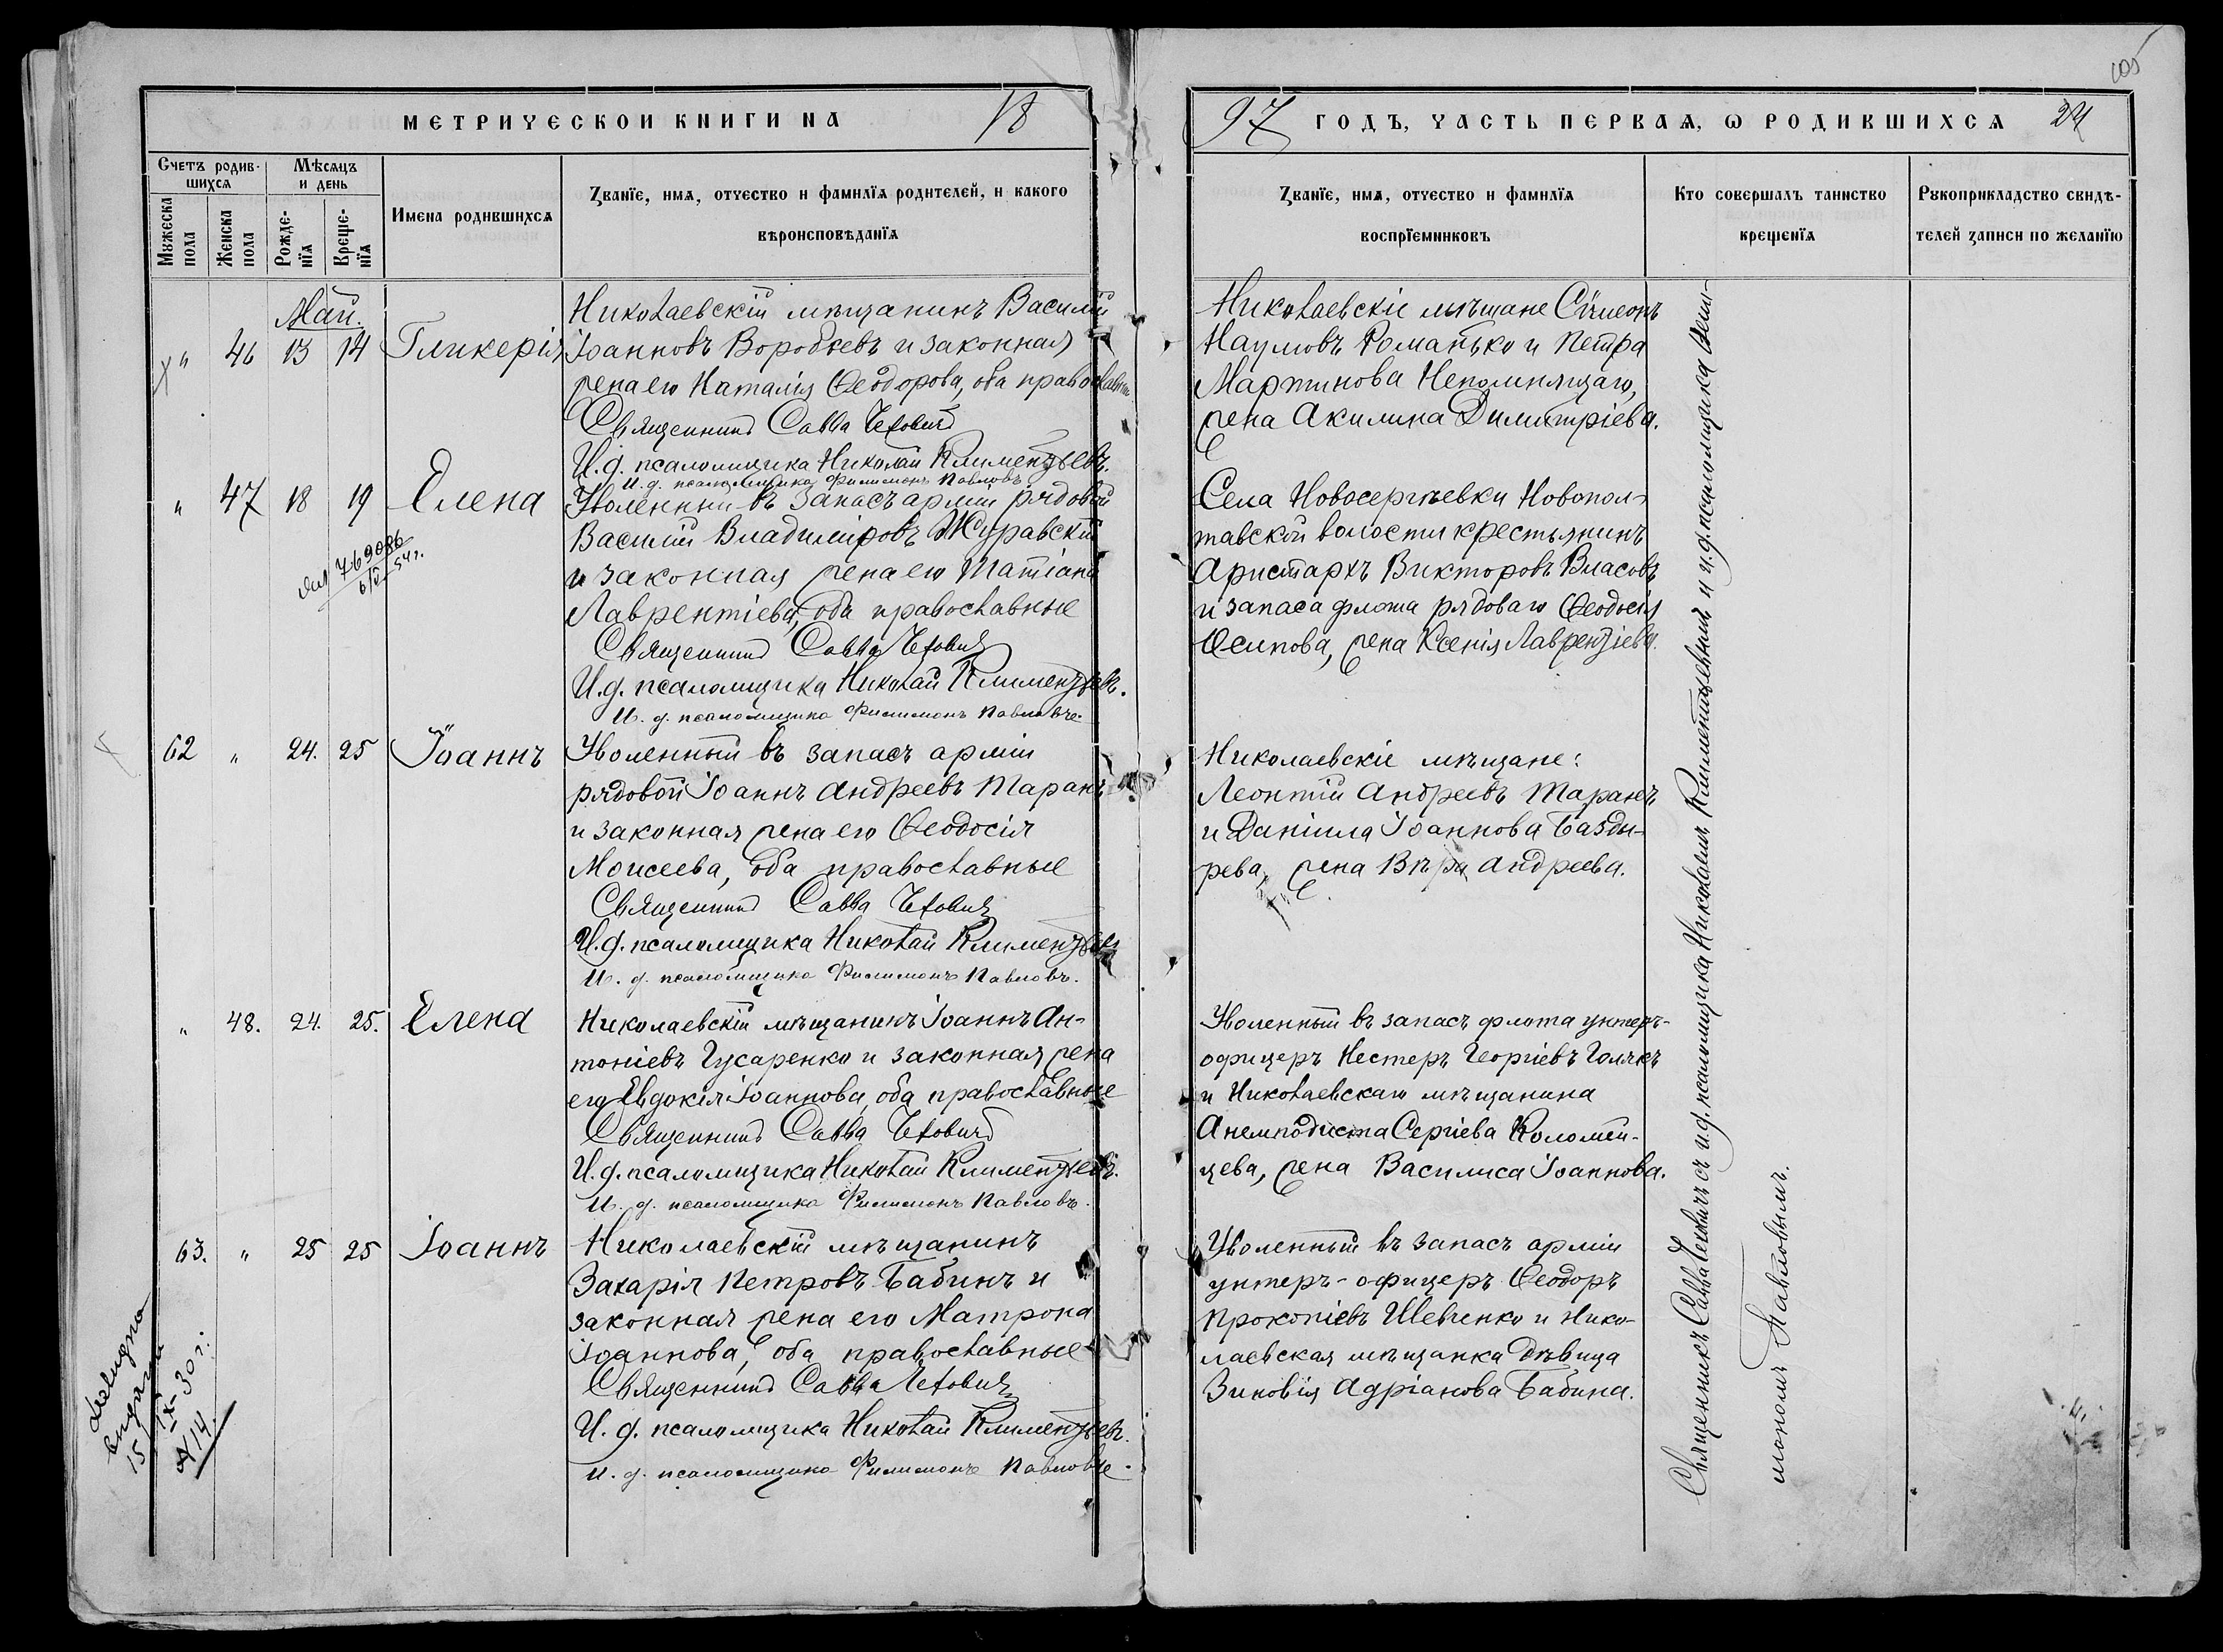 МЕТРИЧЕСКОЙ КНИГИ НА 18
Счетъ родив-
шихся
Мѣсяцъ
и день
Мужеска
пола
Женска
пола
Рожде-
нія
Креще-
нія
Имена родившихся
Званїе, имя, отчество и фамилїя родителей, и какого
вѣроисповѣданїя
Май.
" 46 13 14 Гликерія
Николаевскій мѣщанинъ Василій
Іоанновъ Воробьевъ и законная
жена его Наталія Ѳеодорова, оба православн
Священникъ Савва Чехович
И. д. псаломщика Николай Климентьевъ.
И. д. псаломщика Филимонъ Павловъ
" 47 18 19 Елена
769086
6/V-54г.
Уволенный въ запасъ арміи рядовой
Василій Владиміровъ Журавскій
и законная жена его Татіана
Лаврентіева, оба православные
Священникъ Савва Чехович
И. д. псаломщика Николай Климентьевъ.
И. д. псаломщика Филимонъ Павловъ.
62 " 24. 25 Іоаннъ
Уволенный въ запасъ арміи
рядовой Іоаннъ Андреевъ Таранъ
и законная жена его Ѳеодосія
Моисеева, оба православные
Священникъ Савва Чехович
И. д. псаломщика Николай Климентьевъ
И. д. псаломщика Филимонъ Павловъ.
" 48. 24. 25. Елена
Николаевскій мѣщанинъ Іоаннъ Ан-
тоніевъ Гусаренко и законная жена
его Евдокія Іоаннова, оба православные
Священникъ Савва Чехович
И. д. псаломщика Николай Климентьевъ.
И. д. псаломщика Филимонъ Павловъ.
63. " 25 25 Іоаннъ
Николаевскій мѣщанинъ
Захарія Петровъ Бабинъ и
законная жена его Матрона
Іоаннова, оба православные
Священникъ Савва Чехович
И. д. псаломщика Николай Климентьевъ.
И. д. псаломщика Филимонъ Павловъ.
выдана
15/IX-30 г.
№ 14
105
97 ГОДЪ, ЧАСТЬ ПЕРВАЯ, Ѡ РОДИВШИХСЯ 24
Званїе, имя, отчество и фамилїя
воспрїемниковъ
Кто совершалъ таинство
крещенїя
Рукоприкладство свидѣ-
телей записи по желанїю
Николаевскіе мѣщане Сѵмеонъ
Наумовъ Романько и Петра
Мартинова Непомнящаго,
жена Акилина Димитріева.
Села Новосергѣевки Новопол-
тавской волости крестьянинъ
Аристархъ Викторовъ Власовъ
и запаса флота рядоваго Ѳеодосія
Осипова, жена Ксенія Лаврентіева.
Николаевскіе мѣщане:
Леонтій Андреевъ Таранъ
и Даніила Іоаннова Базды-
рева, жена Вѣра Андреева.
Уволенный въ запасъ флота унтеръ-
офицеръ Нестеръ Георгіевъ Голякъ
и Николаевскаго мѣщанина
Анемподиста Сергіева Коломей-
цева, жена Василиса Іоаннова.
Уволенный въ запасъ арміи
унтеръ-офицеръ Ѳеодоръ
Прокопіевъ Шевченко и Нико-
лаевская мѣщанка дѣвица
Зиновія Адріанова Бабина.
Священникъ Савва Чеховичъ съ и. д. псаломщика Николаемъ Климентьевымъ и и. д. псаломщика Фили-
мономъ Павловымъ.